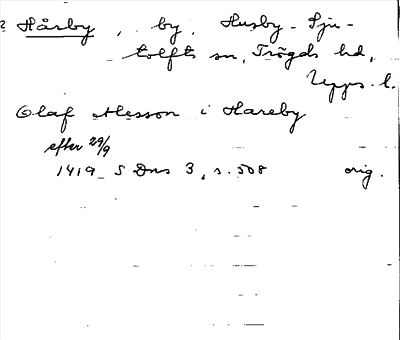 ? Hårby, by, Husby-Sju-
tolfts sn, Trögds hd,
Upps. l.
Olaf Nlesson i Hareby
efter 29/9
1419 SDns 3, s. 508 orig.